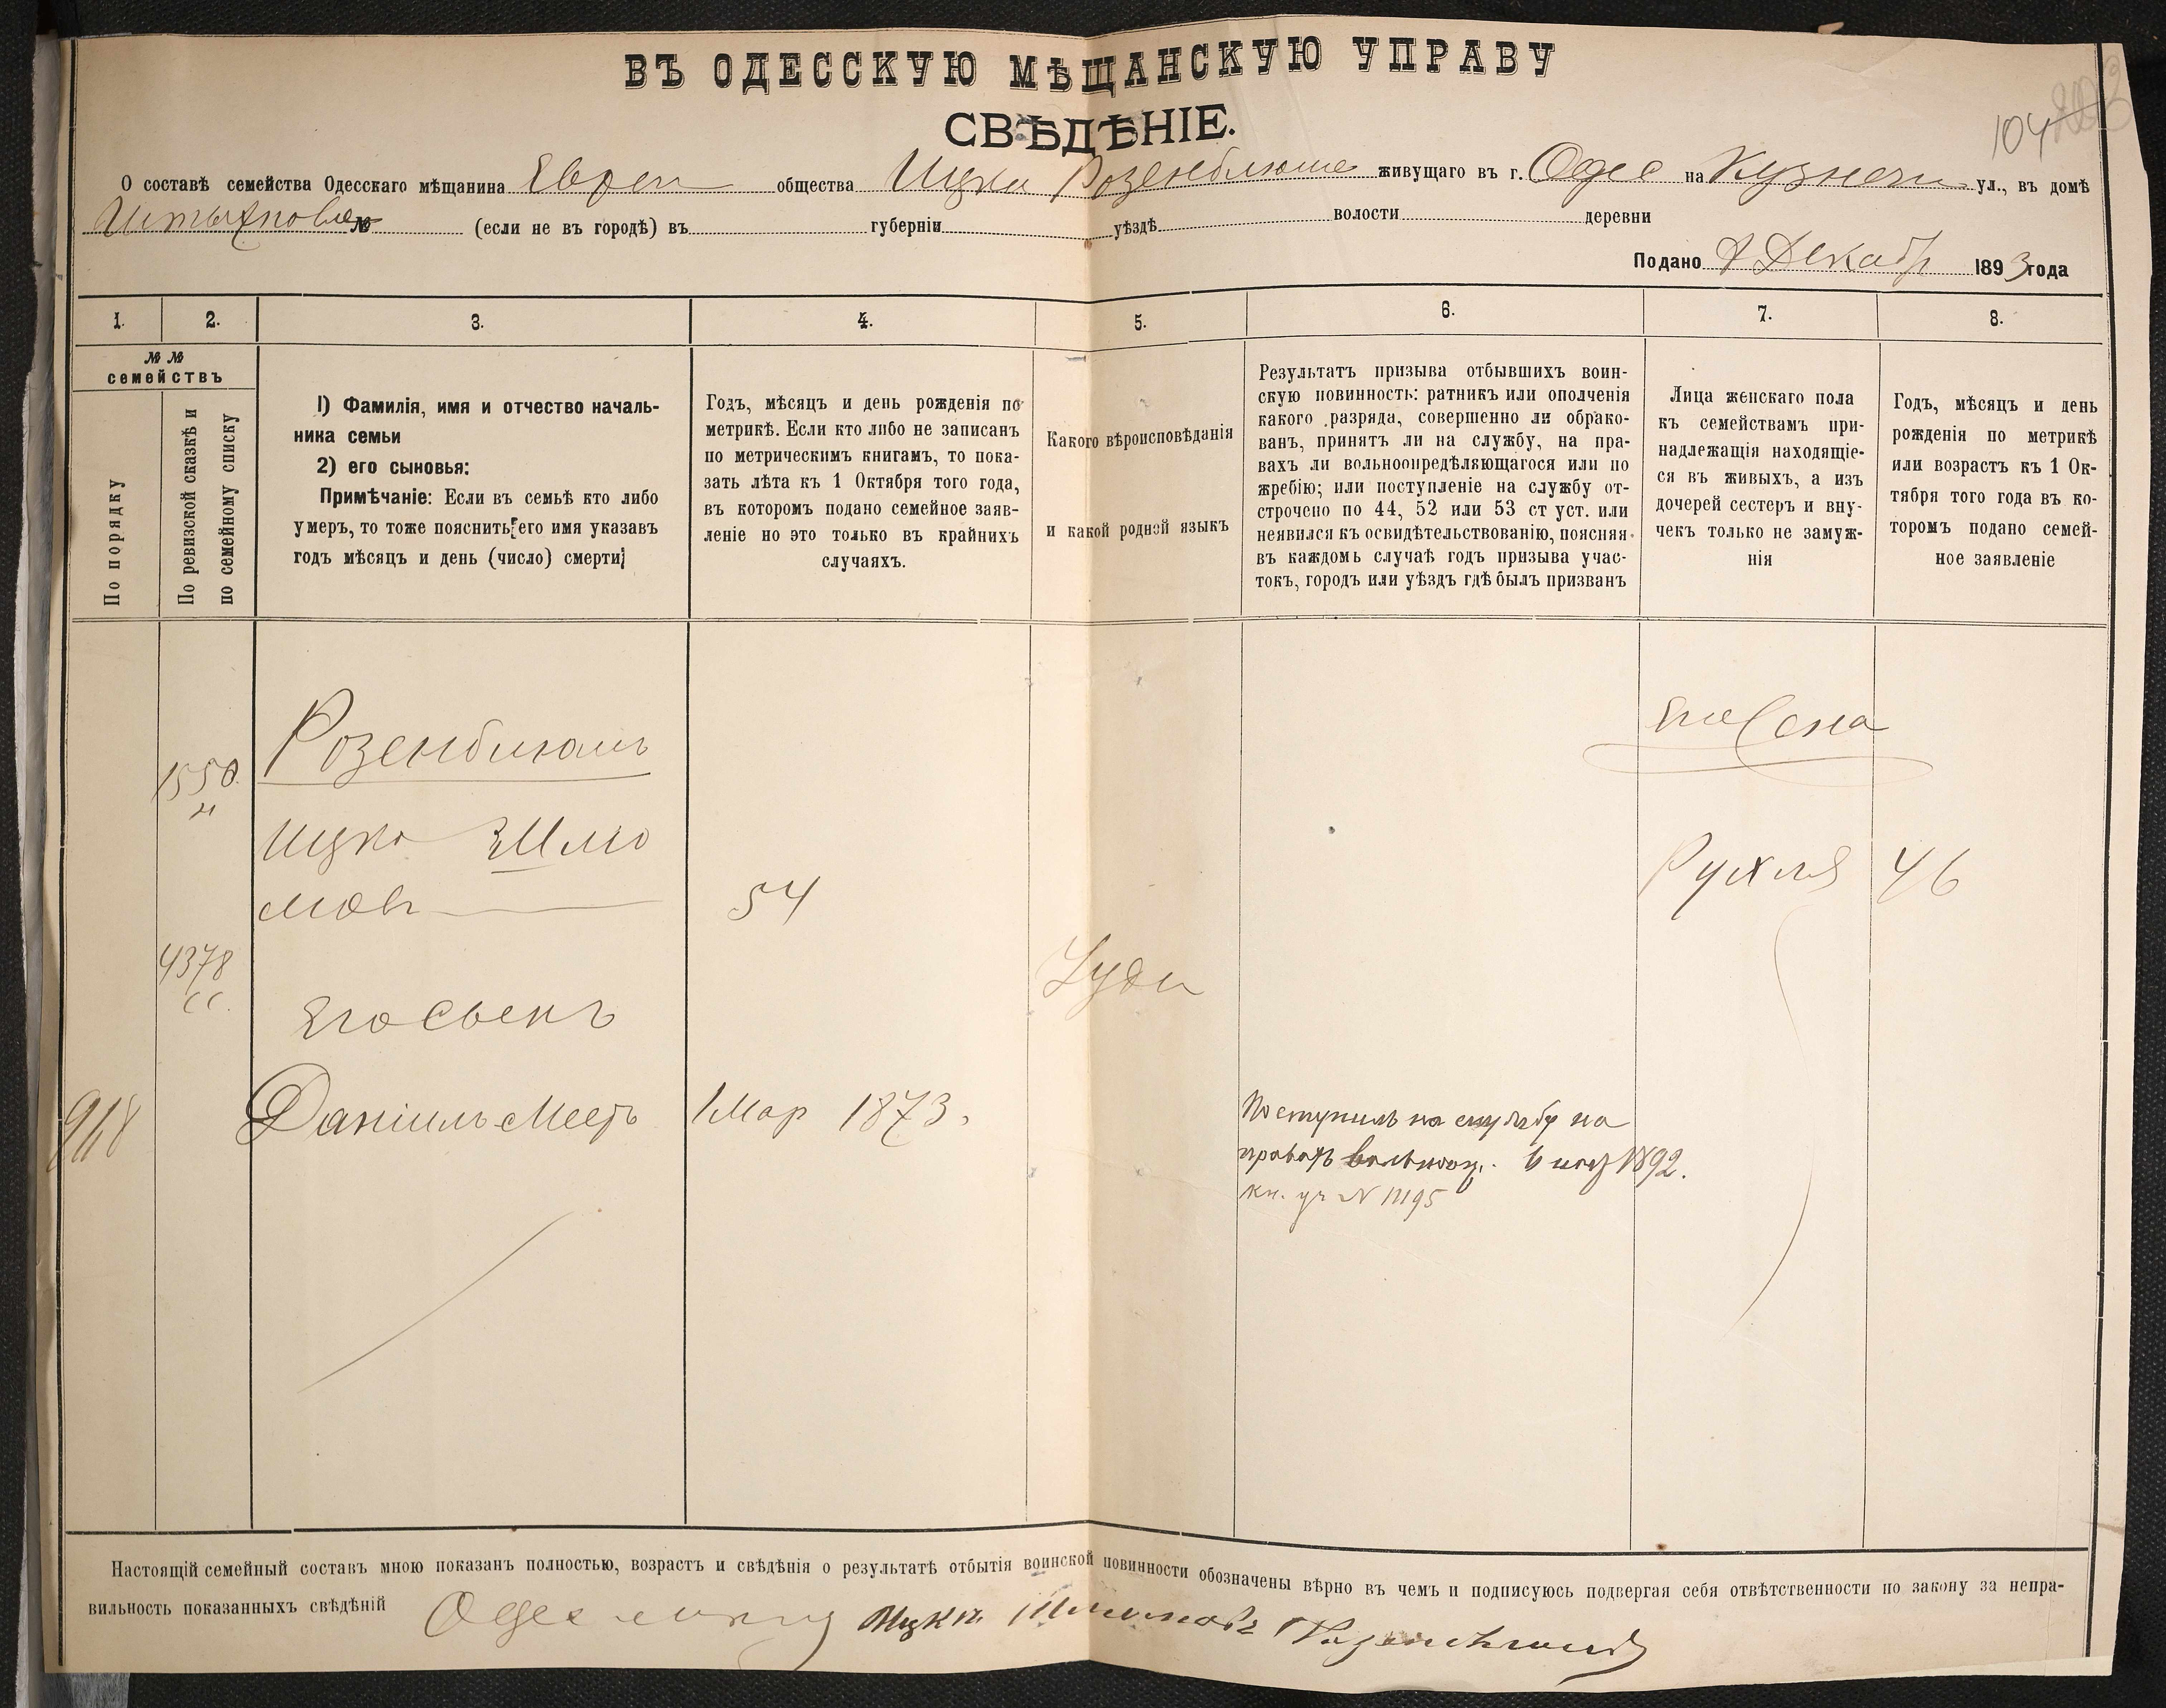 ВЪ ОДЕССКУЮ МѢЩАНСКУЮ УПРАВУ
СВѢДѢНІЕ.
104
О составѣ семейства Одесскаго мѣщанина Евреи общества Ицки Розенблюма живущаго въ г. Одес на Кузнечн ул., въ домѣ
№ (если не въ городѣ) въ губерніи уѣздѣ волости деревни
Подано Декабр 1893 года
1. 2. 3. 4. 5. 6. 7. 8.
№ №
семействъ
По порядку
По ревизской сказкѣ и
по семейному списку
1) Фамилія, имя и отчество началь-
ника семьи
2) его сыновья:
Примѣчаніе: Если въ семьѣ кто либо
умеръ, то тоже пояснить его имя указавъ
годъ мѣсяцъ и день (число) смерти;
Годъ, мѣсяцъ и день рожденія по
метрикѣ. Если кто либо не записанъ
по метрическимъ книгамъ, то пока-
зать лѣта къ 1 Октября того года,
въ которомъ подано семейное заяв-
леніе но это только въ крайнихъ
случаяхъ.
Какого вѣроисповѣданія
и какой родной языкъ
Результатъ призыва отбывшихъ воин-
скую повинность: ратникъ или ополченія
какого разряда, совершенно ли обрако-
ванъ, принятъ ли на службу, на пра-
вахъ ли вольноопредѣляющагося или по
жребію; или поступленіе на службу от-
строчено по 44, 52 или 53 ст уст. или
неявился къ освидѣтельствованію, поясняя
въ каждомъ случаѣ годъ призыва учас-
токъ, городъ или уѣздъ гдѣ былъ призванъ
Лица женскаго пола
къ семействамъ при-
надлежащія находящіе-
ся въ живыхъ, а изъ
дочерей сестеръ и вну-
чекъ только не замуж-
нія
Годъ, мѣсяцъ и день
рожденія по метрикѣ
или возрастъ къ 1 Ок-
тября того года въ ко-
торомъ подано семей-
ное заявленіе
Розенблюмъ
1550
Ицко Шлио
мовъ 54
Его жена
Рухля 46
4378
Іуде
Его Сынъ
968 Даніилъ-Мееръ 1 Мар 1873.
Поступилъ на службу на
правахъ вольнооп. 1892.
кн. уч № 11195
Настоящій семейный составъ мною показанъ полностью, возрастъ и свѣдѣнія о результатѣ отбытія воинской повинности обозначены вѣрно въ чемъ и подписуюсь подвергая себя отвѣтственности по закону за непра-
вильность показанныхъ свѣдѣній Ицка